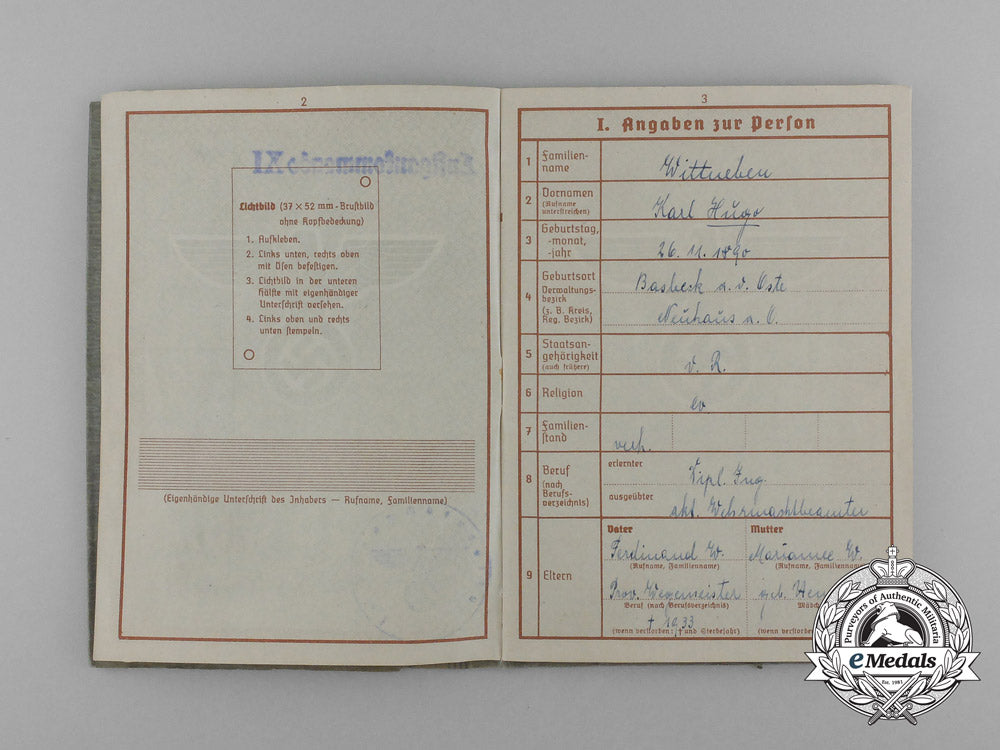 2
Luftgaukommando XI
Lichtbild (37 × 52 mm - Brustbild
ohne Kopfbedeckung)
1. Aufkleben.
2. Links unten, rechts oben
mit Ösen befestigen.
3. Lichtbild in der unteren
Hälfte mit eigenhändiger
Unterschrift versehen.
4. Links oben und rechts
unten stempeln.
(Eigenhändige Unterschrift des Inhabers — Rufname, Familienname)
3
I. Angaben zur Person
1 Familien-
name
Wittneben
2 Vornamen
(Rufname
unterstreichen)
Karl Hugo
3 Geburtstag,
-monat,
-jahr
26. 11. 1890
4 Geburtsort
Verwaltungs-
bezirk
(z. B. Kreis,
Reg. Bezirk)
Basbeck a. d. Oste
Neuhaus a. O.
5 Staatsan-
gehörigkeit
(auch frühere)
d. R.
6 Religion
ev
7 Familien-
stand
verh.
8 Beruf
(nach
Berufs-
verzeichnis)
erlernter
Dipl. Ing.
ausgeübter
akt. Wehrmachtbeamter
9 Eltern
Vater
Ferdinand W.
(Rufname, Familienname)
Prov. Wegemeister
Beruf (nach Berufsverzeichnis)
† 1933
(wenn verstorben: † und Sterbejahr)
Mutter
Marianne W.
(Rufname, Familienname)
geb.
(wenn verstorben
Purveyors of Authentic Militaria
eMedals
Est. 1981